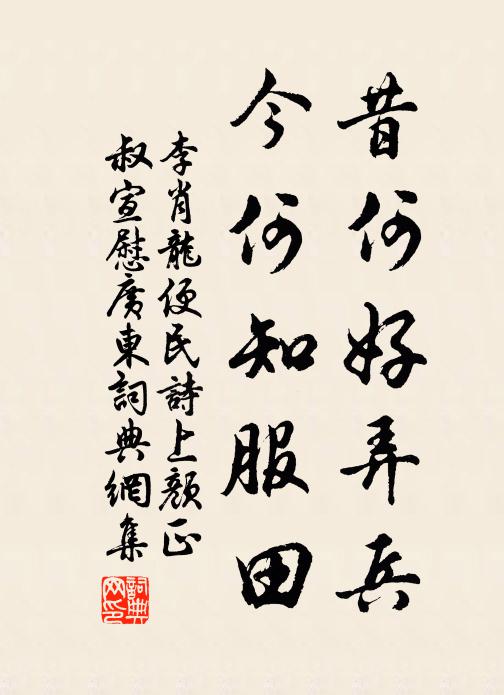 昔何好弄兵
今何知服田
李肖龍便民詩上顏正
叔宣慰廣東詞典網集
詞典网印